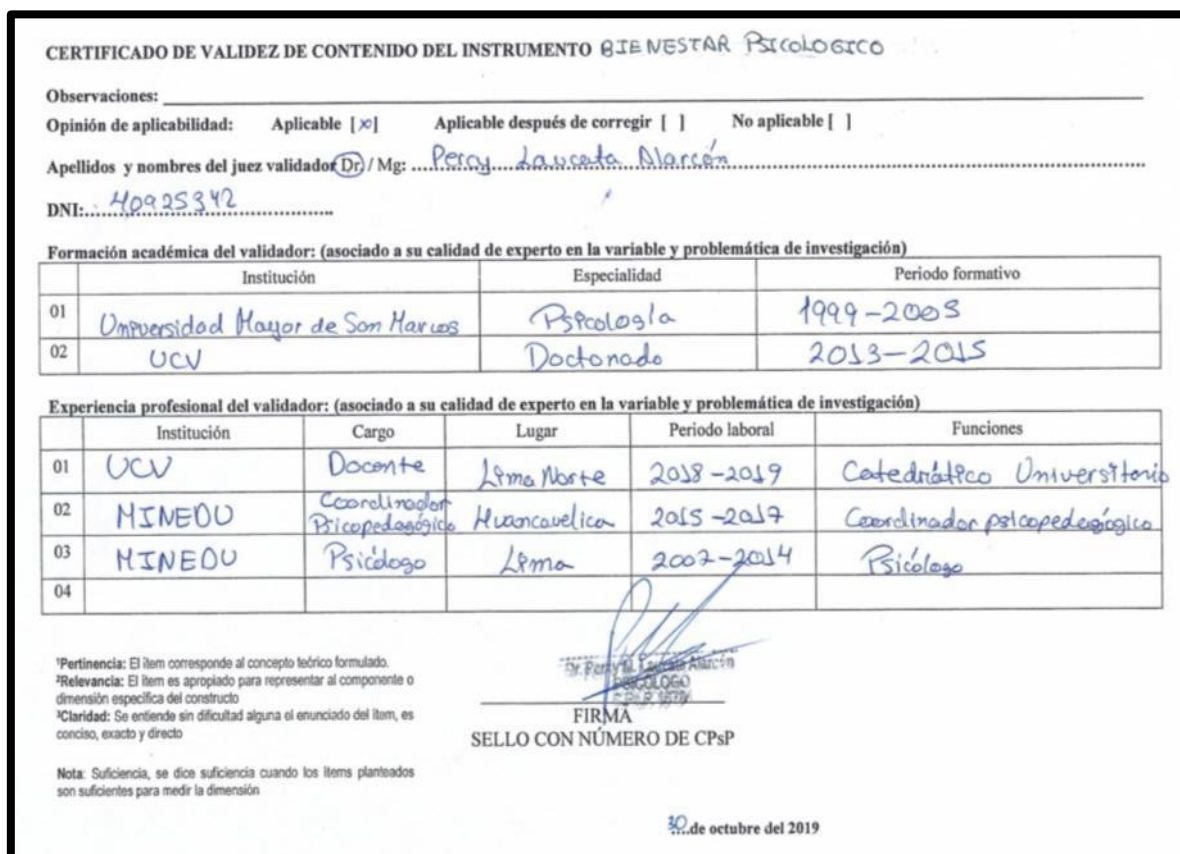 CERTIFICADO DE VALIDEZ DE CONTENIDO DEL INSTRUMENTO BIENESTAR PSICOLOGICO
Observaciones:
Opinión de aplicabilidad: Aplicable [x] Aplicable después de corregir [ ] No aplicable [ ]
Apellidos y nombres del juez validador Dr. / Mg: Percy Laucata Alarcón
DNI: 40925342
Formación académica del validador: (asociado a su calidad de experto en la variable y problemática de investigación)
Institución Especialidad Periodo formativo
01 Universidad Mayor de San Marcos Psicología 1999-2005
02 UCV Doctorado 2013-2015
Experiencia profesional del validador: (asociado a su calidad de experto en la variable y problemática de investigación)
Institución Cargo Lugar Periodo laboral Funciones
01 UCV Docente Lima Norte 2018-2019 Catedrático Universitario
02 MINEDU Coordinador Psicopedagógico Huancavelica 2015-2017 Coordinador psicopedagógico
03 MINEDU Psicólogo Lima 2007-2014 Psicólogo
04
¹Pertinencia: El ítem corresponde al concepto teórico formulado.
²Relevancia: El ítem es apropiado para representar al componente o
dimensión específica del constructo
³Claridad: Se entiende sin dificultad alguna el enunciado del ítem, es
conciso, exacto y directo
Nota: Suficiencia, se dice suficiencia cuando los ítems planteados
son suficientes para medir la dimensión
Dr. Percy Laucata Alarcón
PSICOLOGO
FIRMA
SELLO CON NÚMERO DE CPsP
30 de octubre del 2019